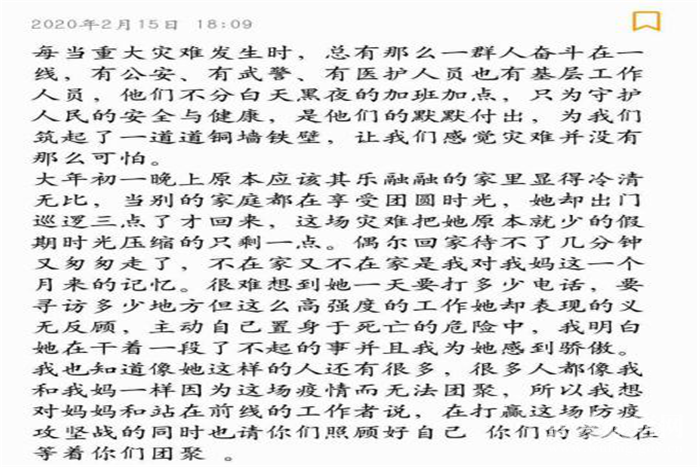 2020年2月15日 18:09
每当重大灾难发生时，总有那么一群人奋斗在一
线，有公安、有武警、有医护人员也有基层工作
人员，他们不分白天黑夜的加班加点，只为守护
人民的安全与健康，是他们的默默付出，为我们
筑起了一道道铜墙铁壁，让我们感觉灾难并没有
那么可怕。
大年初一晚上原本应该其乐融融的家里显得冷清
无比，当别的家庭都在享受团圆时光，她却出门
巡逻三点了才回来，这场灾难把她原本就少的假
期时光压缩的只剩一点。偶尔回家待不了几分钟
又匆匆走了，不在家又不在家是我对我妈这一个
月来的记忆。很难想到她一天要打多少电话，要
寻访多少地方但这么高强度的工作她却表现的义
无反顾，主动自己置身于死亡的危险中，我明白
她在干着一段了不起的事并且我为她感到骄傲。
我也知道像她这样的人还有很多，很多人都像我
和我妈一样因为这场疫情而无法团聚，所以我想
对妈妈和站在前线的工作者说，在打赢这场防疫
攻坚战的同时也请你们照顾好自己 你们的家人在
等着你们团聚 。